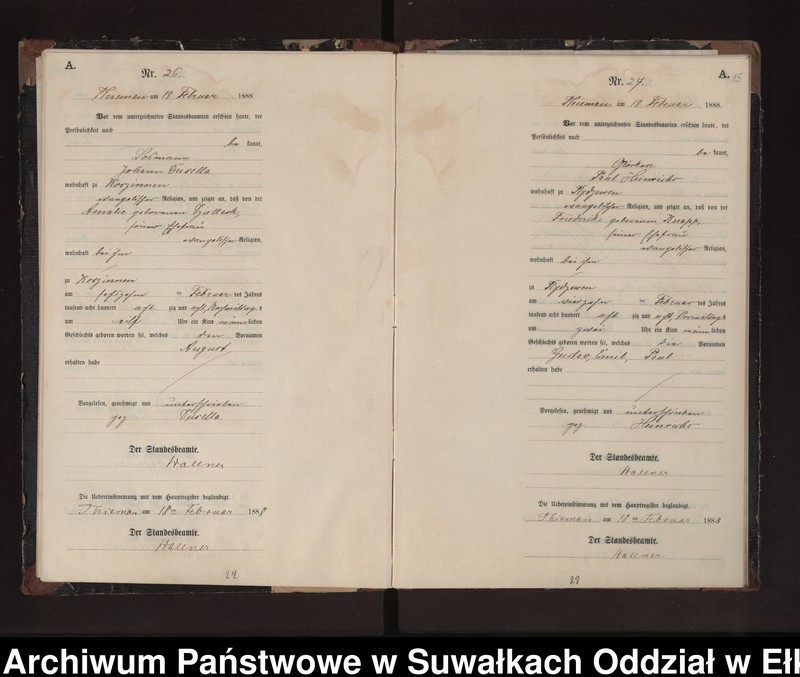 A.
Nr. 26.
am 18 Februar 1888.
Vor dem unterzeichneten Standesbeamten erschien heute, der
Persönlichkeit nach
be kannt,
Losmann
Johann Durella
wohnhaft zu Korzinnen
evangelischer Religion, und zeigte an, daß von der
Amalie geborenen
seiner Ehefrau
evangelischer Religion,
wohnhaft bei ihm
zu Korzinnen
am sechszehn ten Februar des Jahres
tausend acht hundert acht zig und acht, Nachmittag s
um eilf Uhr ein Kind männ lichen
Geschlechts geboren worden sei, welches den Vornamen
August
erhalten habe
Vorgelesen, genehmigt und unterschrieben
gez Durella
Der Standesbeamte.
Wallner
Die Uebereinstimmung mit dem Hauptregister beglaubigt.
am 18ten Februar 1888
Der Standesbeamte.
Wallner
24
A. 15
Nr. 27.
am 18 Februar 1888.
Vor dem unterzeichneten Standesbeamten erschien heute, der
Persönlichkeit nach
be kannt,
Paul Heinrichs
wohnhaft zu Rydzewen
evangelischer Religion, und zeigte an, daß von der
Friederike geborenen Knapp,
seiner Ehefrau
evangelischer Religion,
wohnhaft bei ihm
zu Rydzewen
am vierzehn ten Februar des Jahres
tausend acht hundert acht zig und acht, Vormittag s
um zwei Uhr ein Kind männ lichen
Geschlechts geboren worden sei, welches die Vornamen
Gustav, Emil, Paul
erhalten habe
Vorgelesen, genehmigt und unterschrieben
gez Heinrichs
Der Standesbeamte.
Wallner
Die Uebereinstimmung mit dem Hauptregister beglaubigt.
am 18ten Februar 1888
Der Standesbeamte.
Wallner
28
Archiwum Państwowe w Suwałkach Oddział w Ełk